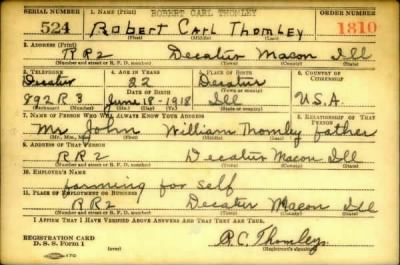 SERIAL NUMBER 1. NAME (Print) ROBERT CARL THOMLEY ORDER NUMBER
524 Robert Carl Thomley 1810
(First) (Middle) (Last)
2. ADDRESS (Print)
RR2 Decatur Macon Ill
(Number and street or R. F. D. number) (Town) (County) (State)
3. TELEPHONE 4. AGE IN YEARS 5. PLACE OF BIRTH 6. COUNTRY OF CITIZENSHIP
Decatur 22 Decatur
DATE OF BIRTH (Town or county)
892 R 3 June-18-1918 Ill U.S.A.
7. NAME OF PERSON WHO WILL ALWAYS KNOW YOUR ADDRESS 8. RELATIONSHIP OF THAT PERSON
Mr. John William Thomley father
(Mr., Mrs., Miss) (First) (Middle) (Last)
9. ADDRESS OF THAT PERSON
RR2 Decatur Macon Ill
(Number and street or R. F. D. number) (Town) (County) (State)
10. EMPLOYER'S NAME
farming for self
11. PLACE OF EMPLOYMENT OR BUSINESS
RR2 Decatur Macon Ill
(Number and street or R. F. D. number) (Town) (County) (State)
I AFFIRM THAT I HAVE VERIFIED ABOVE ANSWERS AND THAT THEY ARE TRUE.
REGISTRATION CARD
D. S. S. Form 1 (over) R.C. Thomley
(Registrant's signature)